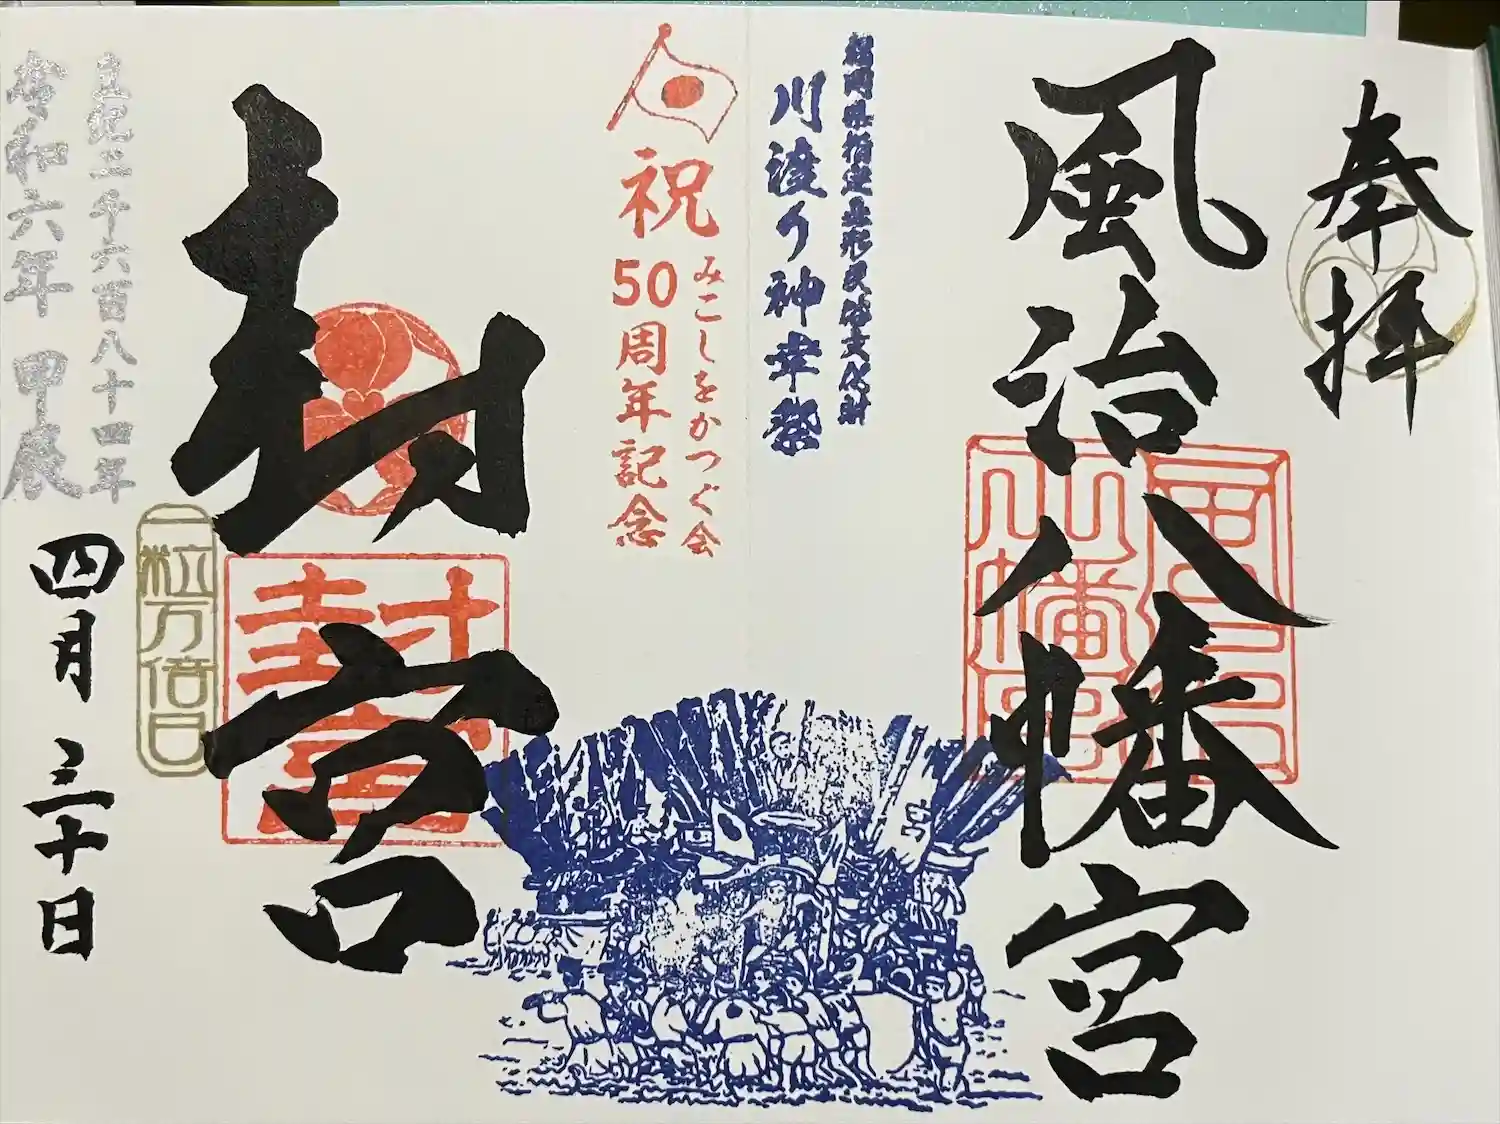 奉拝
風治八幡宮
福岡県指定無形民俗文化財
川渡り神幸祭
祝
みこしをかつぐ会
50周年記念
封宮
封宮
一粒万倍日
皇紀二千六百八十四年
令和六年 甲辰
四月三十日